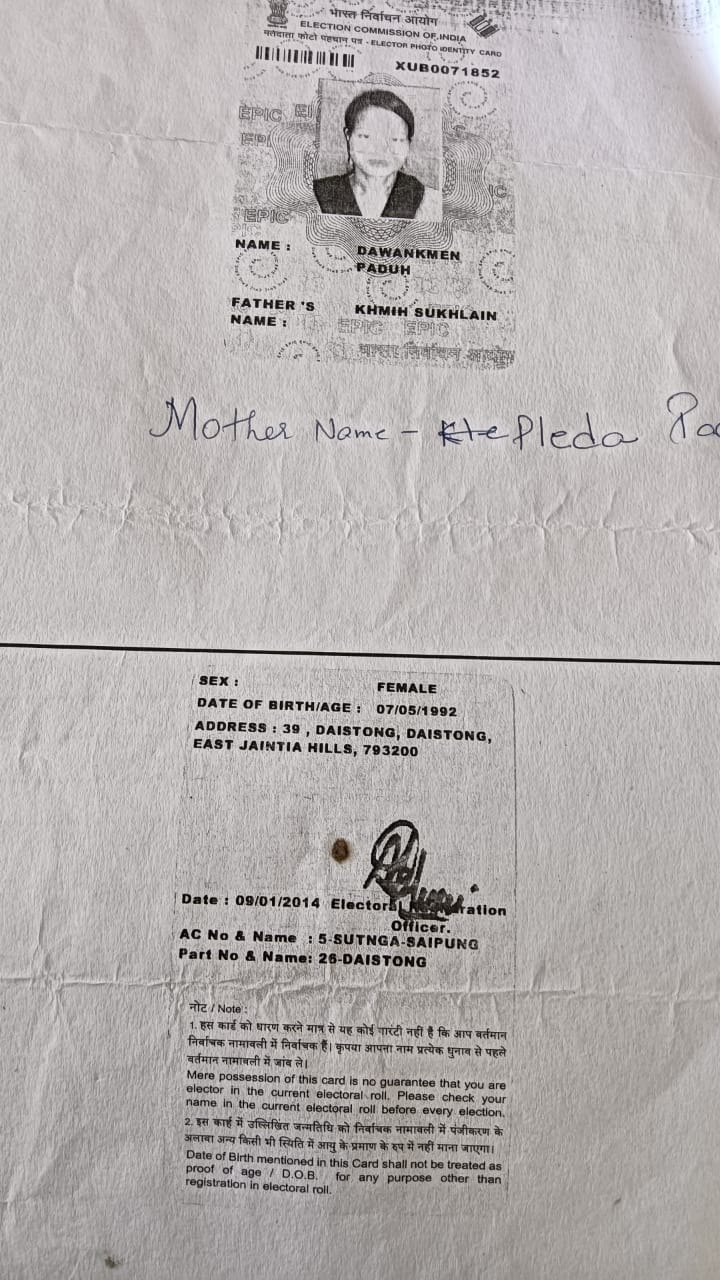 भारत निर्वाचन आयोग
ELECTION COMMISSION OF INDIA
मतदाता फोटो पहचान पत्र - ELECTOR PHOTO IDENTITY CARD
XUB0071852
EPIC
EPIC
NAME : DAWANKMEN
PADUH
FATHER'S KHMIH SUKHLAIN
NAME :
EPIC EPIC
भारत निर्वाचन आयोग
Mother Name - Pleda
SEX : FEMALE
DATE OF BIRTH/AGE : 07/05/1992
ADDRESS : 39 , DAISTONG, DAISTONG,
EAST JAINTIA HILLS, 793200
Date : 09/01/2014 Electoral Registration
Officer.
AC No & Name : 5-SUTNGA-SAIPUNG
Part No & Name: 26-DAISTONG
नोट / Note :
1. इस कार्ड को धारण करने मात्र से यह कोई गारंटी नहीं है कि आप वर्तमान
निर्वाचक नामावली में निर्वाचक हैं। कृपया आपना नाम प्रत्येक चुनाव से पहले
वर्तमान नामावली में जांच ले।
Mere possession of this card is no guarantee that you are
elector in the current electoral roll. Please check your
name in the current electoral roll before every election.
2. इस कार्ड में उल्लिखित जन्मतिथि को निर्वाचक नामावली में पंजीकरण के
अलावा अन्य किसी भी स्थिति में आयु के प्रमाण के रुप में नहीं माना जाएगा।
Date of Birth mentioned in this Card shall not be treated as
proof of age / D.O.B. for any purpose other than
registration in electoral roll.